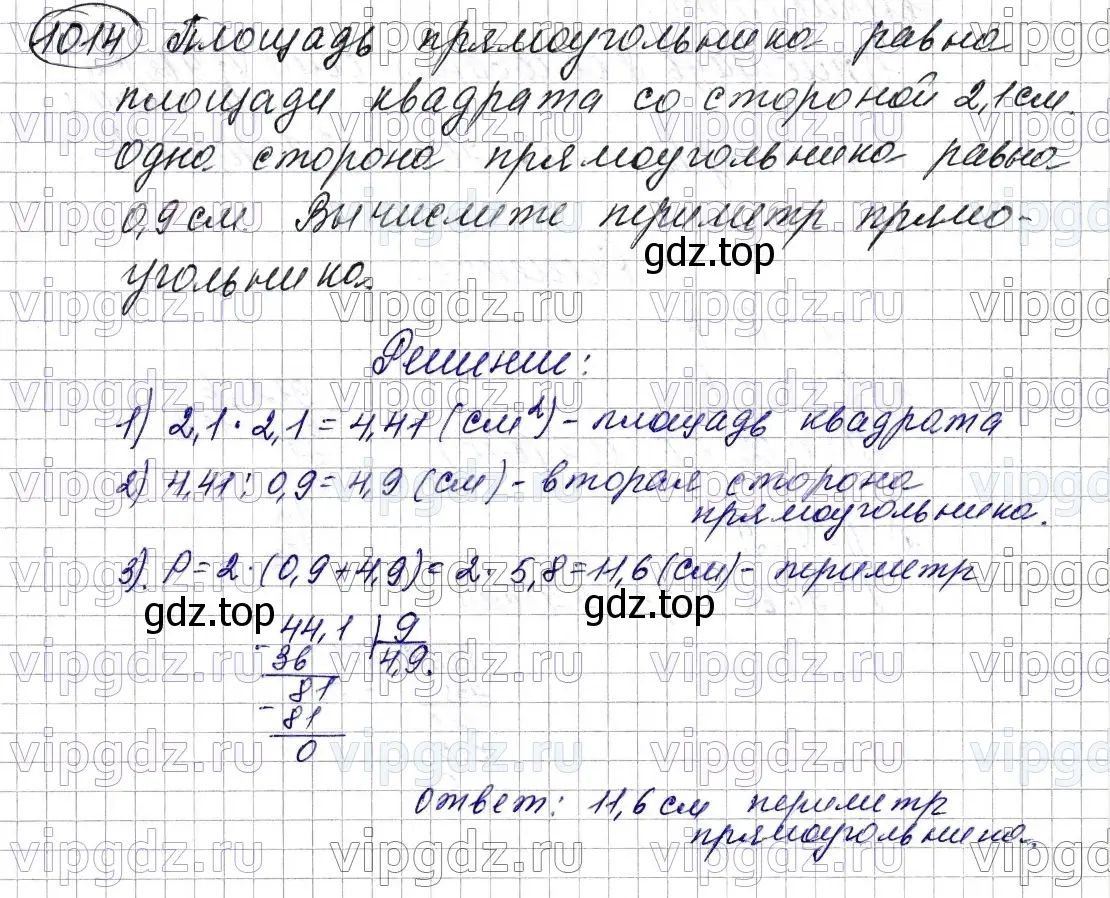 1014 Площадь прямоугольника равна
площади квадрата со стороной 2,1 см.
Одна сторона прямоугольника равна
0,9 см. Вычислите периметр прямо-
gdz.top
угольника.
Решение:
1) 2,1 · 2,1 = 4,41 (см²) – площадь квадрата
2) 4,41 : 0,9 = 4,9 (см) – вторая сторона
прямоугольника.
3). P = 2 · (0,9 + 4,9) = 2 · 5,8 = 11,6 (см) – периметр
gdz.top gdz.top
44,1 | 9
- 36 4,9.
81
- 81
0
ответ: 11,6 см периметр
прямоугольника.
vipgdz.ru